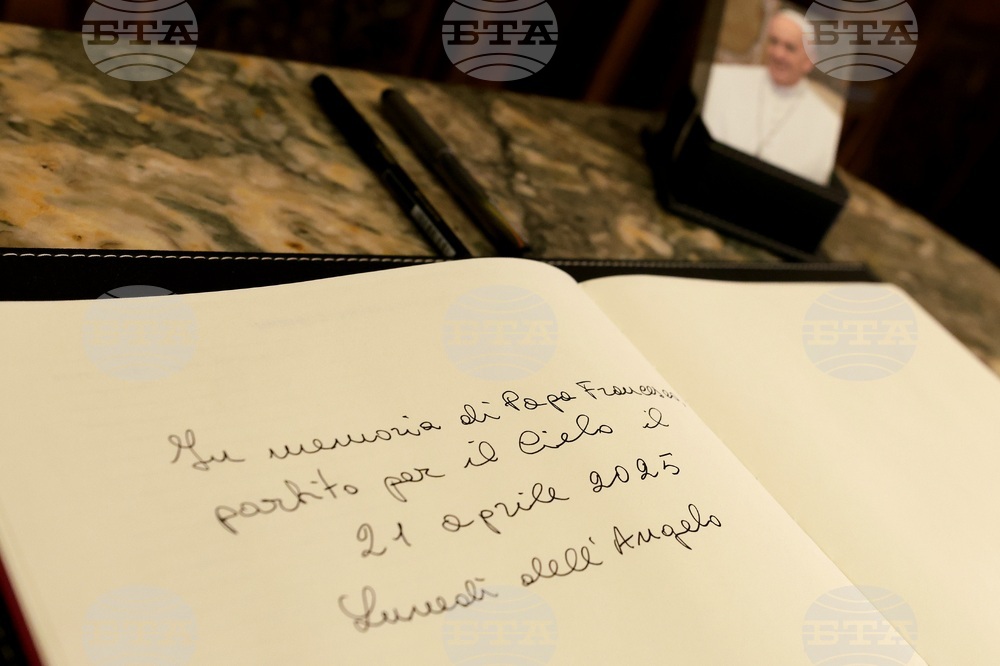 БТА БТА БТА
In memoria di Papa Francesco,
partito per il Cielo il
21 aprile 2025
Lunedì dell'Angelo
БТА БТА БТА
БТА БТА БТА